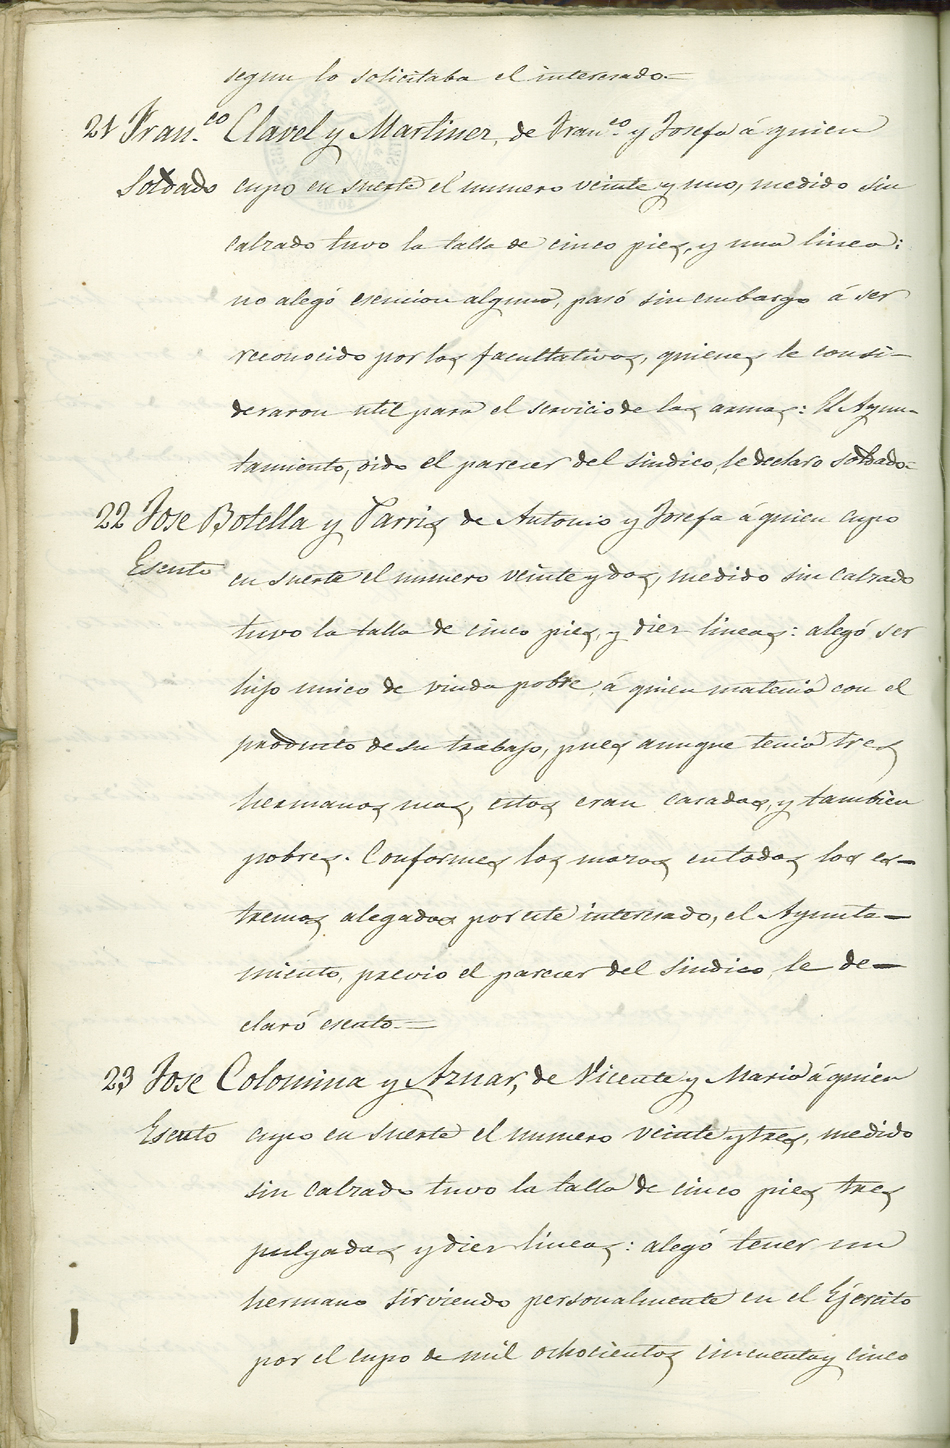 segun lo solicitaba el interesado.=
21 Fran.co Clavel y Martinez, de Fran.co y Josefa á quien
Soldado cupo en suerte el numero veinte y uno, medido sin
calzado tuvo la talla de cinco pies, y una linea:
no alegó esencion alguna, pasó sin embargo á ser
reconocido por los facultativos, quienes le consi-
deraron util para el servicio de las armas: El Ayun-
tamiento, oido el parecer del sindico, le declaro soldado=
22 Jose Botella y Parris de Antonio y Josefa á quien cupo
Esento en suerte el numero veinte y dos, medido sin calzado
tuvo la talla de cinco pies, y diez lineas: alegó ser
hijo unico de viuda pobre, á quien matenia con el
producto de su trabajo, pues aunque tenia tres
hermanos mas, estos eran casados, y tambien
pobres. Conformes los mozos en todos los es-
tremos alegados por este interesado, el Ayunta-
miento, previo el parecer del sindico, le de-
claró esento.=
23 Jose Colomina y Aznar, de Vicente y Maria á quien
Esento cupo en suerte el numero veinte y tres, medido
sin calzado tuvo la talla de cinco pies tres
pulgadas y diez lineas: alegó tener un
hermano sirviendo personalmente en el Ejercito
por el cupo de mil ochocientos cincuenta y cinco